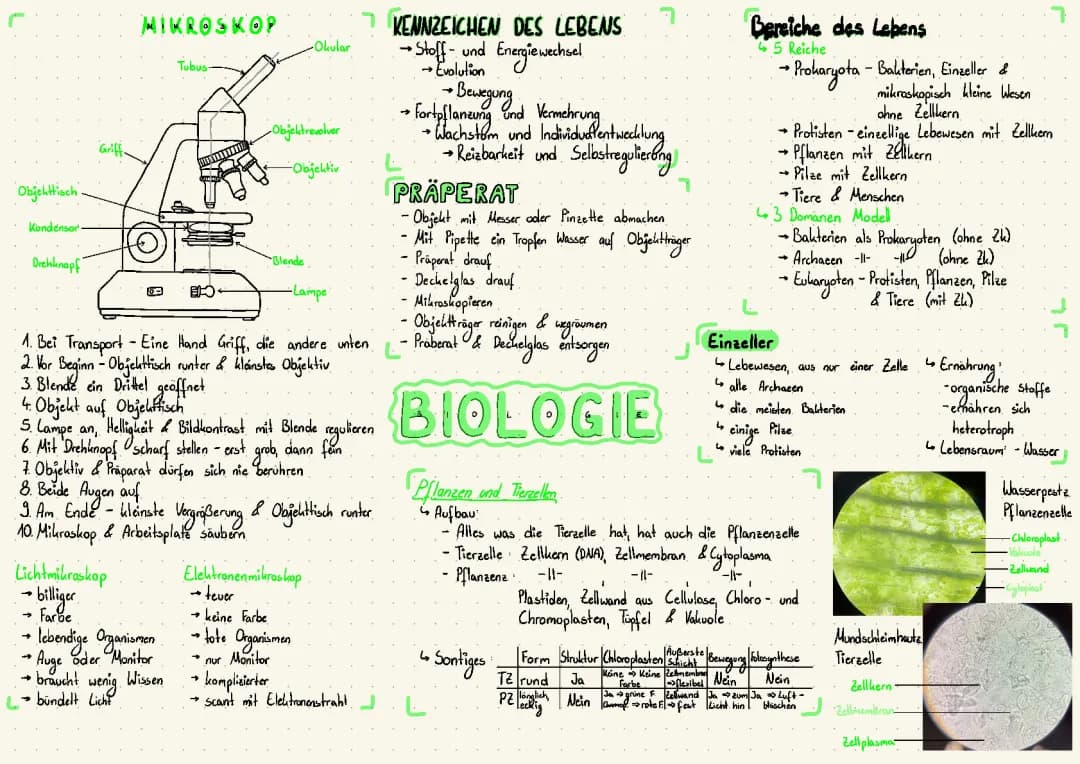 MIKROSKOP
Okular
Tubus
Objektrevolver
Griff
Objektiv
Objekttisch
Kondensor
Drehknopf
Blende
Lampe
1. Bei Transport - Eine Hand Griff, die andere unten
2. Vor Beginn - Objekttisch runter & kleinstes Objektiv
3. Blende ein Drittel geöffnet
4. Objekt auf Objekttisch
5. Lampe an, Helligkeit & Bildkontrast mit Blende regulieren
6. Mit Drehknopf scharf stellen - erst grob, dann fein
7. Objektiv & Präparat dürfen sich nie berühren
8. Beide Augen auf
9. Am Ende - kleinste Vergrößerung & Objekttisch runter
10. Mikroskop & Arbeitsplatz säubern
Lichtmikroskop
→ billiger
→ Farbe
→ lebendige Organismen
→ Auge oder Monitor
→ braucht wenig Wissen
→ bündelt Licht
Elektronenmikroskop
→ teuer
→ keine Farbe
→ tote Organismen
→ nur Monitor
→ komplizierter
→ scant mit Elektronenstrahl
KENNZEICHEN DES LEBENS
→ Stoff- und Energiewechsel
→ Evolution
→ Bewegung
→ Fortpflanzung und Vermehrung
→ Wachstum und Individualentwicklung
→ Reizbarkeit und Selbstregulierung
PRÄPERAT
- Objekt mit Messer oder Pinzette abmachen
- Mit Pipette ein Tropfen Wasser auf Objektträger
- Präparat drauf
- Deckelglas drauf
- Mikroskopieren
- Objektträger reinigen & wegräumen
- Präberat & Deckelglas entsorgen
BIOLOGIE
Bereiche des Lebens
↳ 5 Reiche
→ Prokaryota - Bakterien, Einzeller &
mikroskopisch kleine Wesen
ohne Zellkern
→ Protisten - einzellige Lebewesen mit Zellkern
→ Pflanzen mit Zellkern
→ Pilze mit Zellkern
→ Tiere & Menschen
↳ 3 Domänen Modell
→ Bakterien als Prokaryoten (ohne Zk)
→ Archaeen -||- -||- (ohne Zk)
→ Eukaryoten - Protisten, Pflanzen, Pilze
& Tiere (mit Zk)
Einzeller
↳ Lebewesen, aus nur einer Zelle
↳ alle Archaeen
↳ die meisten Bakterien
↳ einige Pilze
↳ viele Protisten
↳ Ernährung:
- organische Stoffe
- ernähren sich
heterotroph
↳ Lebensraum - Wasser
Pflanzen und Tierzellen
↳ Aufbau:
- Alles was die Tierzelle hat, hat auch die Pflanzenzelle
- Tierzelle: Zellkern (DNA), Zellmembran & Cytoplasma
- Pflanzenz.: -||- -||- -||-
Plastiden, Zellwand aus Cellulose, Chloro- und
Chromoplasten, Tüpfel & Vakuole
↳ Sontiges
Form Struktur Chloroplasten Äußerste Schicht Bewegung Fotosynthese
TZ rund Ja Keine → Keine Farbe Zellmembran → flexibel Nein Nein
PZ länglich, eckig Nein Ja → grüne F. → rote F. Zellwand → fest Ja → zum Licht hin Ja → Luft-bläschen
Wasserpestz.
Pflanzenzelle
Chloroplast
Vakuole
Zellwand
Cytoplast
Mundschleimhautz.
Tierzelle
Zellkern
Zellmembran
Zellplasma